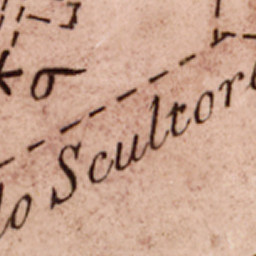 σ
lo Scultor